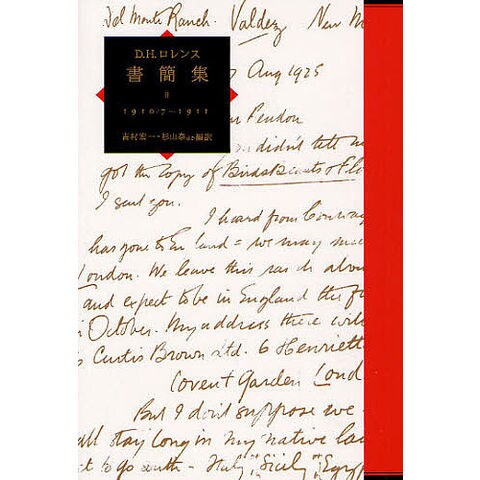 Del Monte Ranch. Valdez New M
D.H.ロレンス
書簡集
II
1910/7〜1911
吉村宏一・杉山泰ほか編訳
Aug 1925
Pendon
didn't tell me
got the copy of Birds Beasts & Flo
I sent you.
I heard from Conway
has gone to England = we may mee
London. We leave this ranch abou
and expect to be in England the fi
October. My address there will
Curtis Brown Ltd. 6 Henriett
Covent Garden Lond
But I don't suppose we
all stay long in my native lan
to go south – Italy, Sicily Egyp